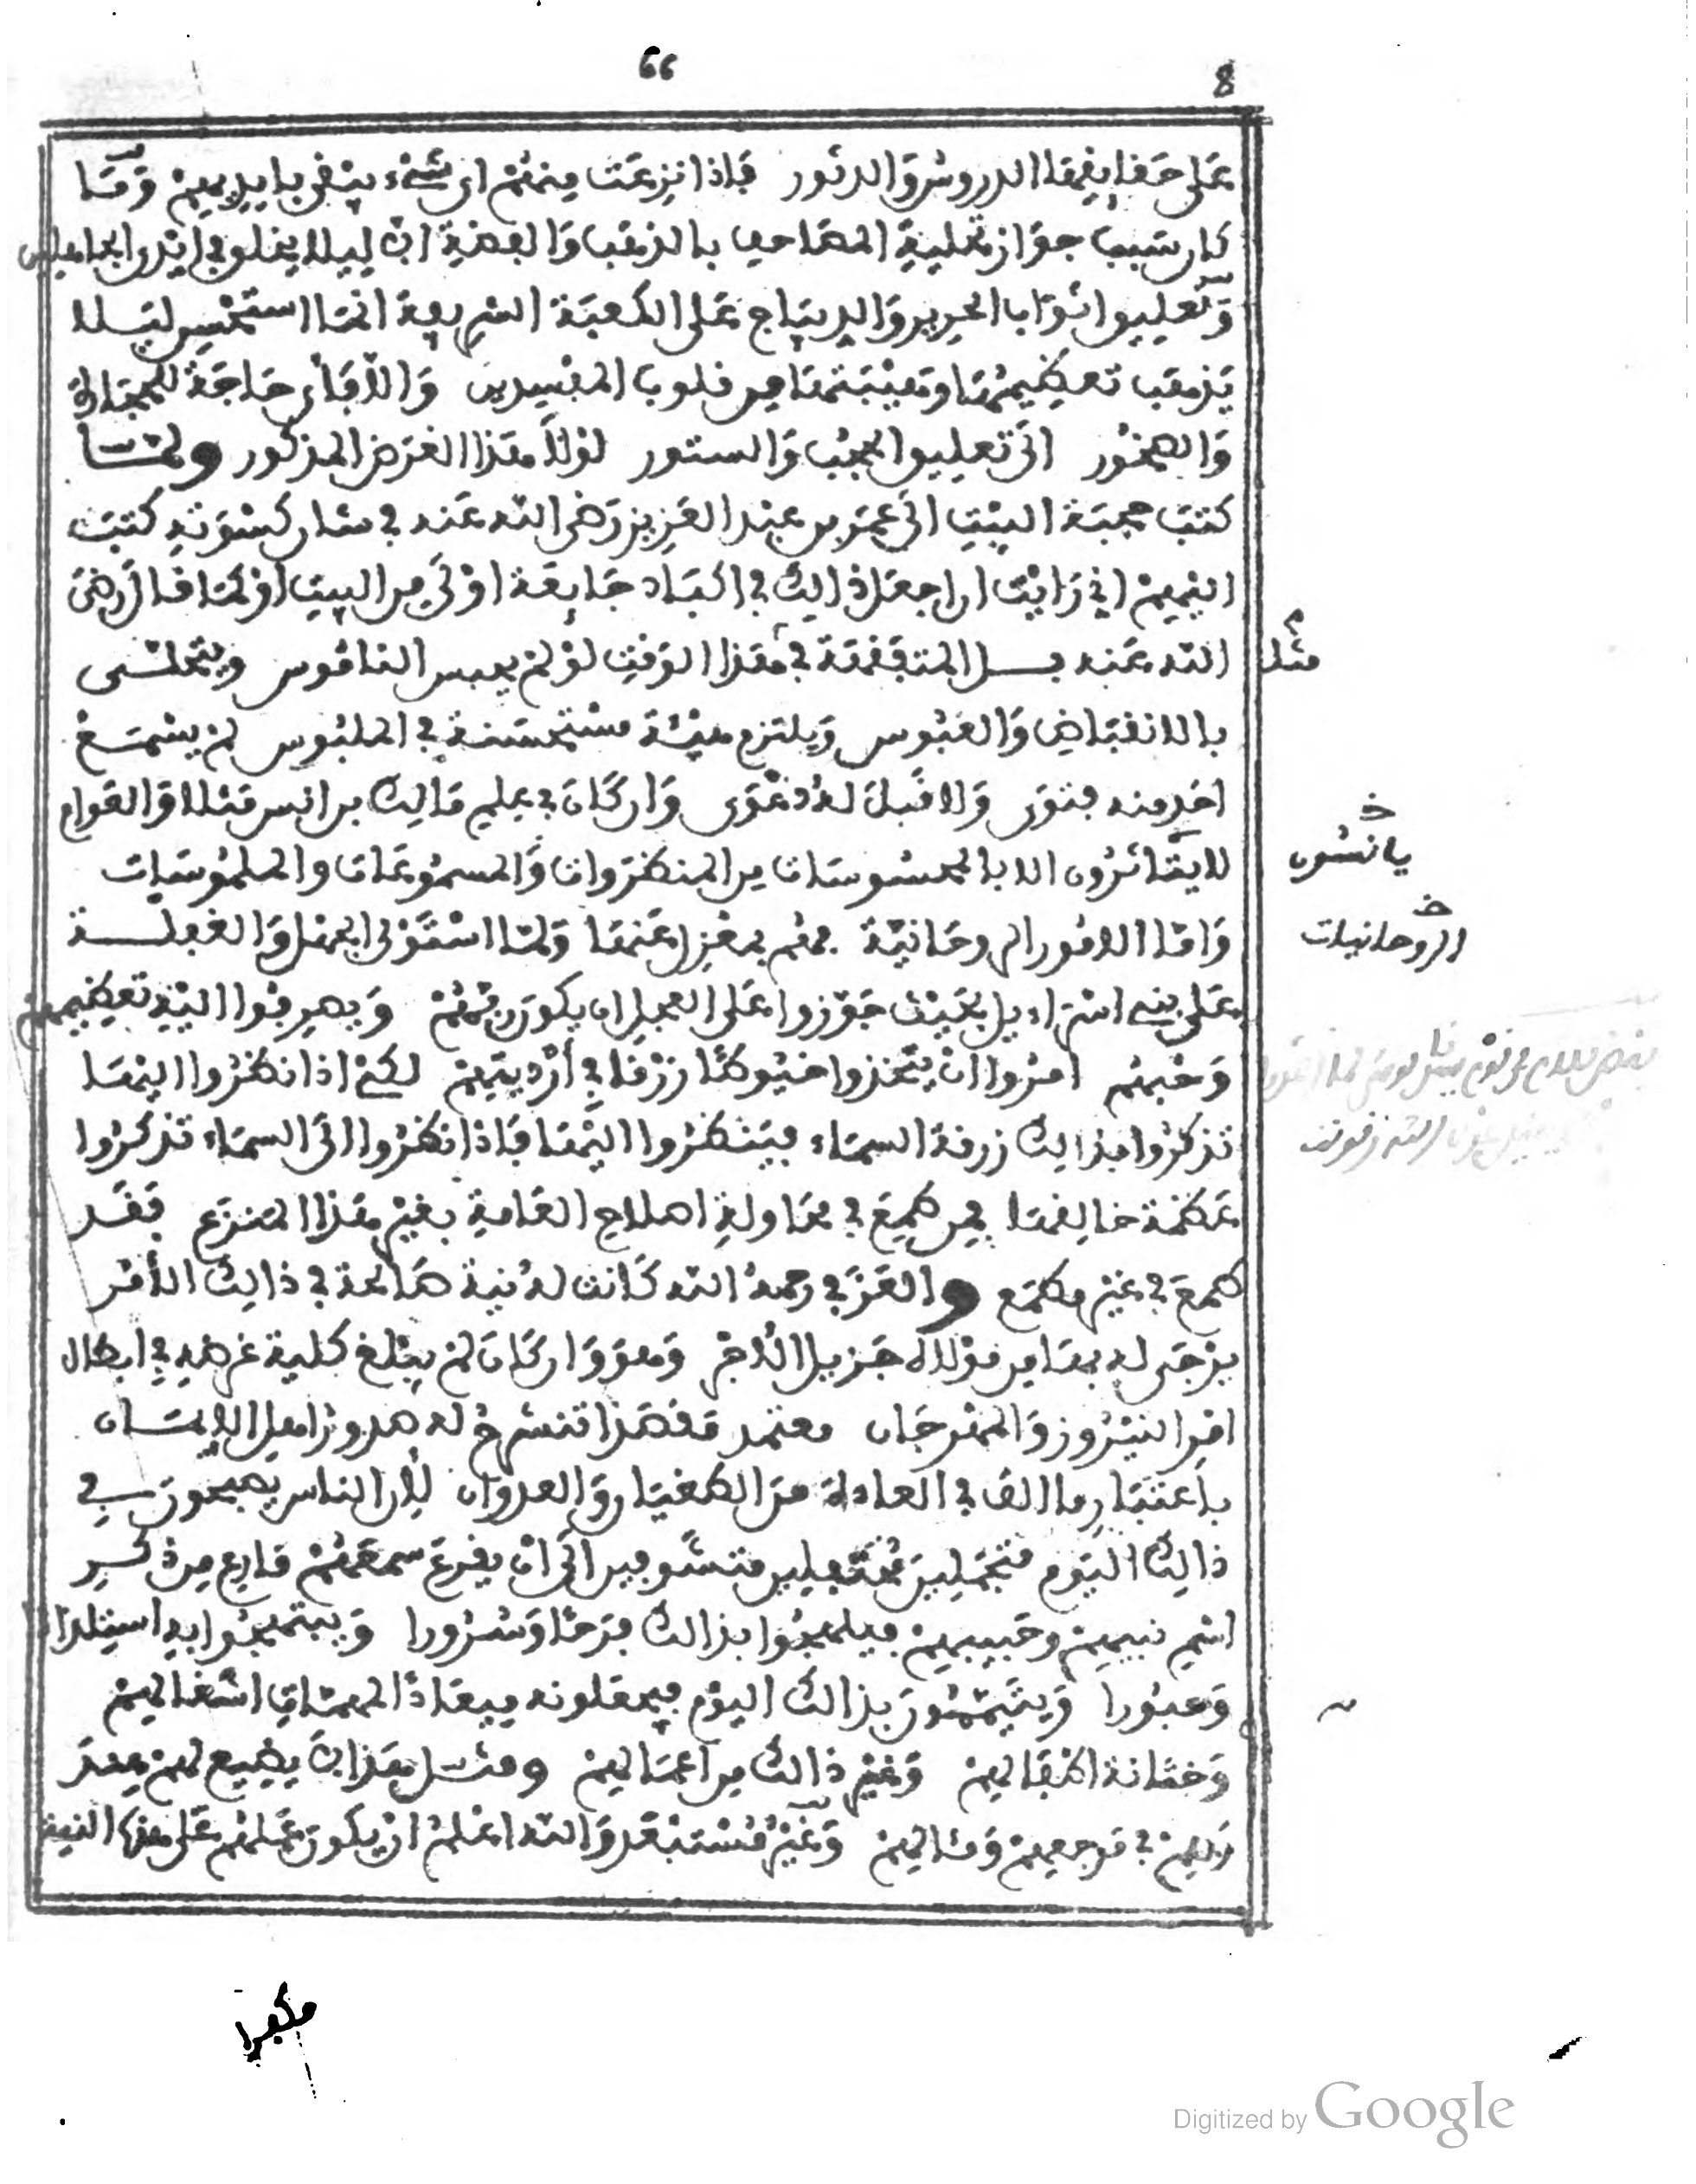 66
8
على حقايقها الدروس والدثور فاذا نزعت منهم اى شىء يبقى بايديهم وما
كان سبب جواز تحلية المصاحف بالذهب والفضة ان ليلا يخلو فى ايدى الجاهلين
وتعليق اثواب الحرير والديباج على الكعبة الشريفة انما استحسن ليلا
يذهب تعظيمها وهيبتها من قلوب المفسدين والا فاى حاجة للحجارة
والصخور الى تعليق الحجب والستور لولا هذا الغرض المذكور ولما
كتب حجبة البيت الى عمر بن عبد العزيز رضى الله عنه فى شان كسوته كتب
اليهم انى رايت ان اجعل ذالك فى اكباد جايعة اولى من البيت او كما قال رضى
الله عنه بل المتفقهة فى هذا الوقت لو لم يلبس الناموس ويتحلى
مثلا
بالانقباض والعبوس ويلتزم هيئة مستحسنة فى الملبوس لم يسمع
احد منه فتوى ولا قبل له دعوى وان كان فى علم مالك بن انس مثلا والعوام
لا يتاثرون الا بالمحسوسات من المنظورات والمسموعات والملموسات
خ يانسون
واما الامور الروحانية فهم بمعزل عنها ولما استولى الجهل والغفلة
خ الروحانيات
على بنى اسراءيل بحيث جوزوا على العجل ان يكون ربهم وبصرفوا اليه تعظيمهم
وحبهم امروا ان يتخذوا خيوطا زرقا فى ارديتهم لكى اذا نظروا اليها
تذكروا بذالك زرقة السماء فينظروا اليها فاذا نظروا الى السماء تذكروا
عظمة خالقها فمن طمع فى محاولة اصلاح العامة بغير هذا المنزع فقد
طمع فى غير مطمع والعزفى رحمه الله كانت له نية صالحة فى ذالك الامر
يرجى له بها من مولاه جزيل الاجر وهو وان كان لم يبلغ كلية غرضه فى ابطال
امر النيروز والمهرجان معتمد مقصدا تنشرح له صدور اهل الايمان
باعتبار ما الف فى العادة من الطغيان والعدوان لان الناس يصبحون فى
ذالك اليوم متجملين محتفلين متشوفين الى ان يقرع سمعهم قارع من ذكر
اسم نبيهم وحبيبهم فيلهجوا بذالك فرحا وسرورا ويبتهجوا به استلذاذا
وحبورا ويتيمنون بذالك اليوم فيجعلونه ميقاتا لمهمات اشغالهم
وختانة اطفالهم وغير ذالك من اعمالهم ومثل هذا لا يضيع لهم عند
ربهم فى مرجعهم ومثالهم وغير مستبعد والله اعلم ان يكون عملهم على هذه النية
Digitized by Google